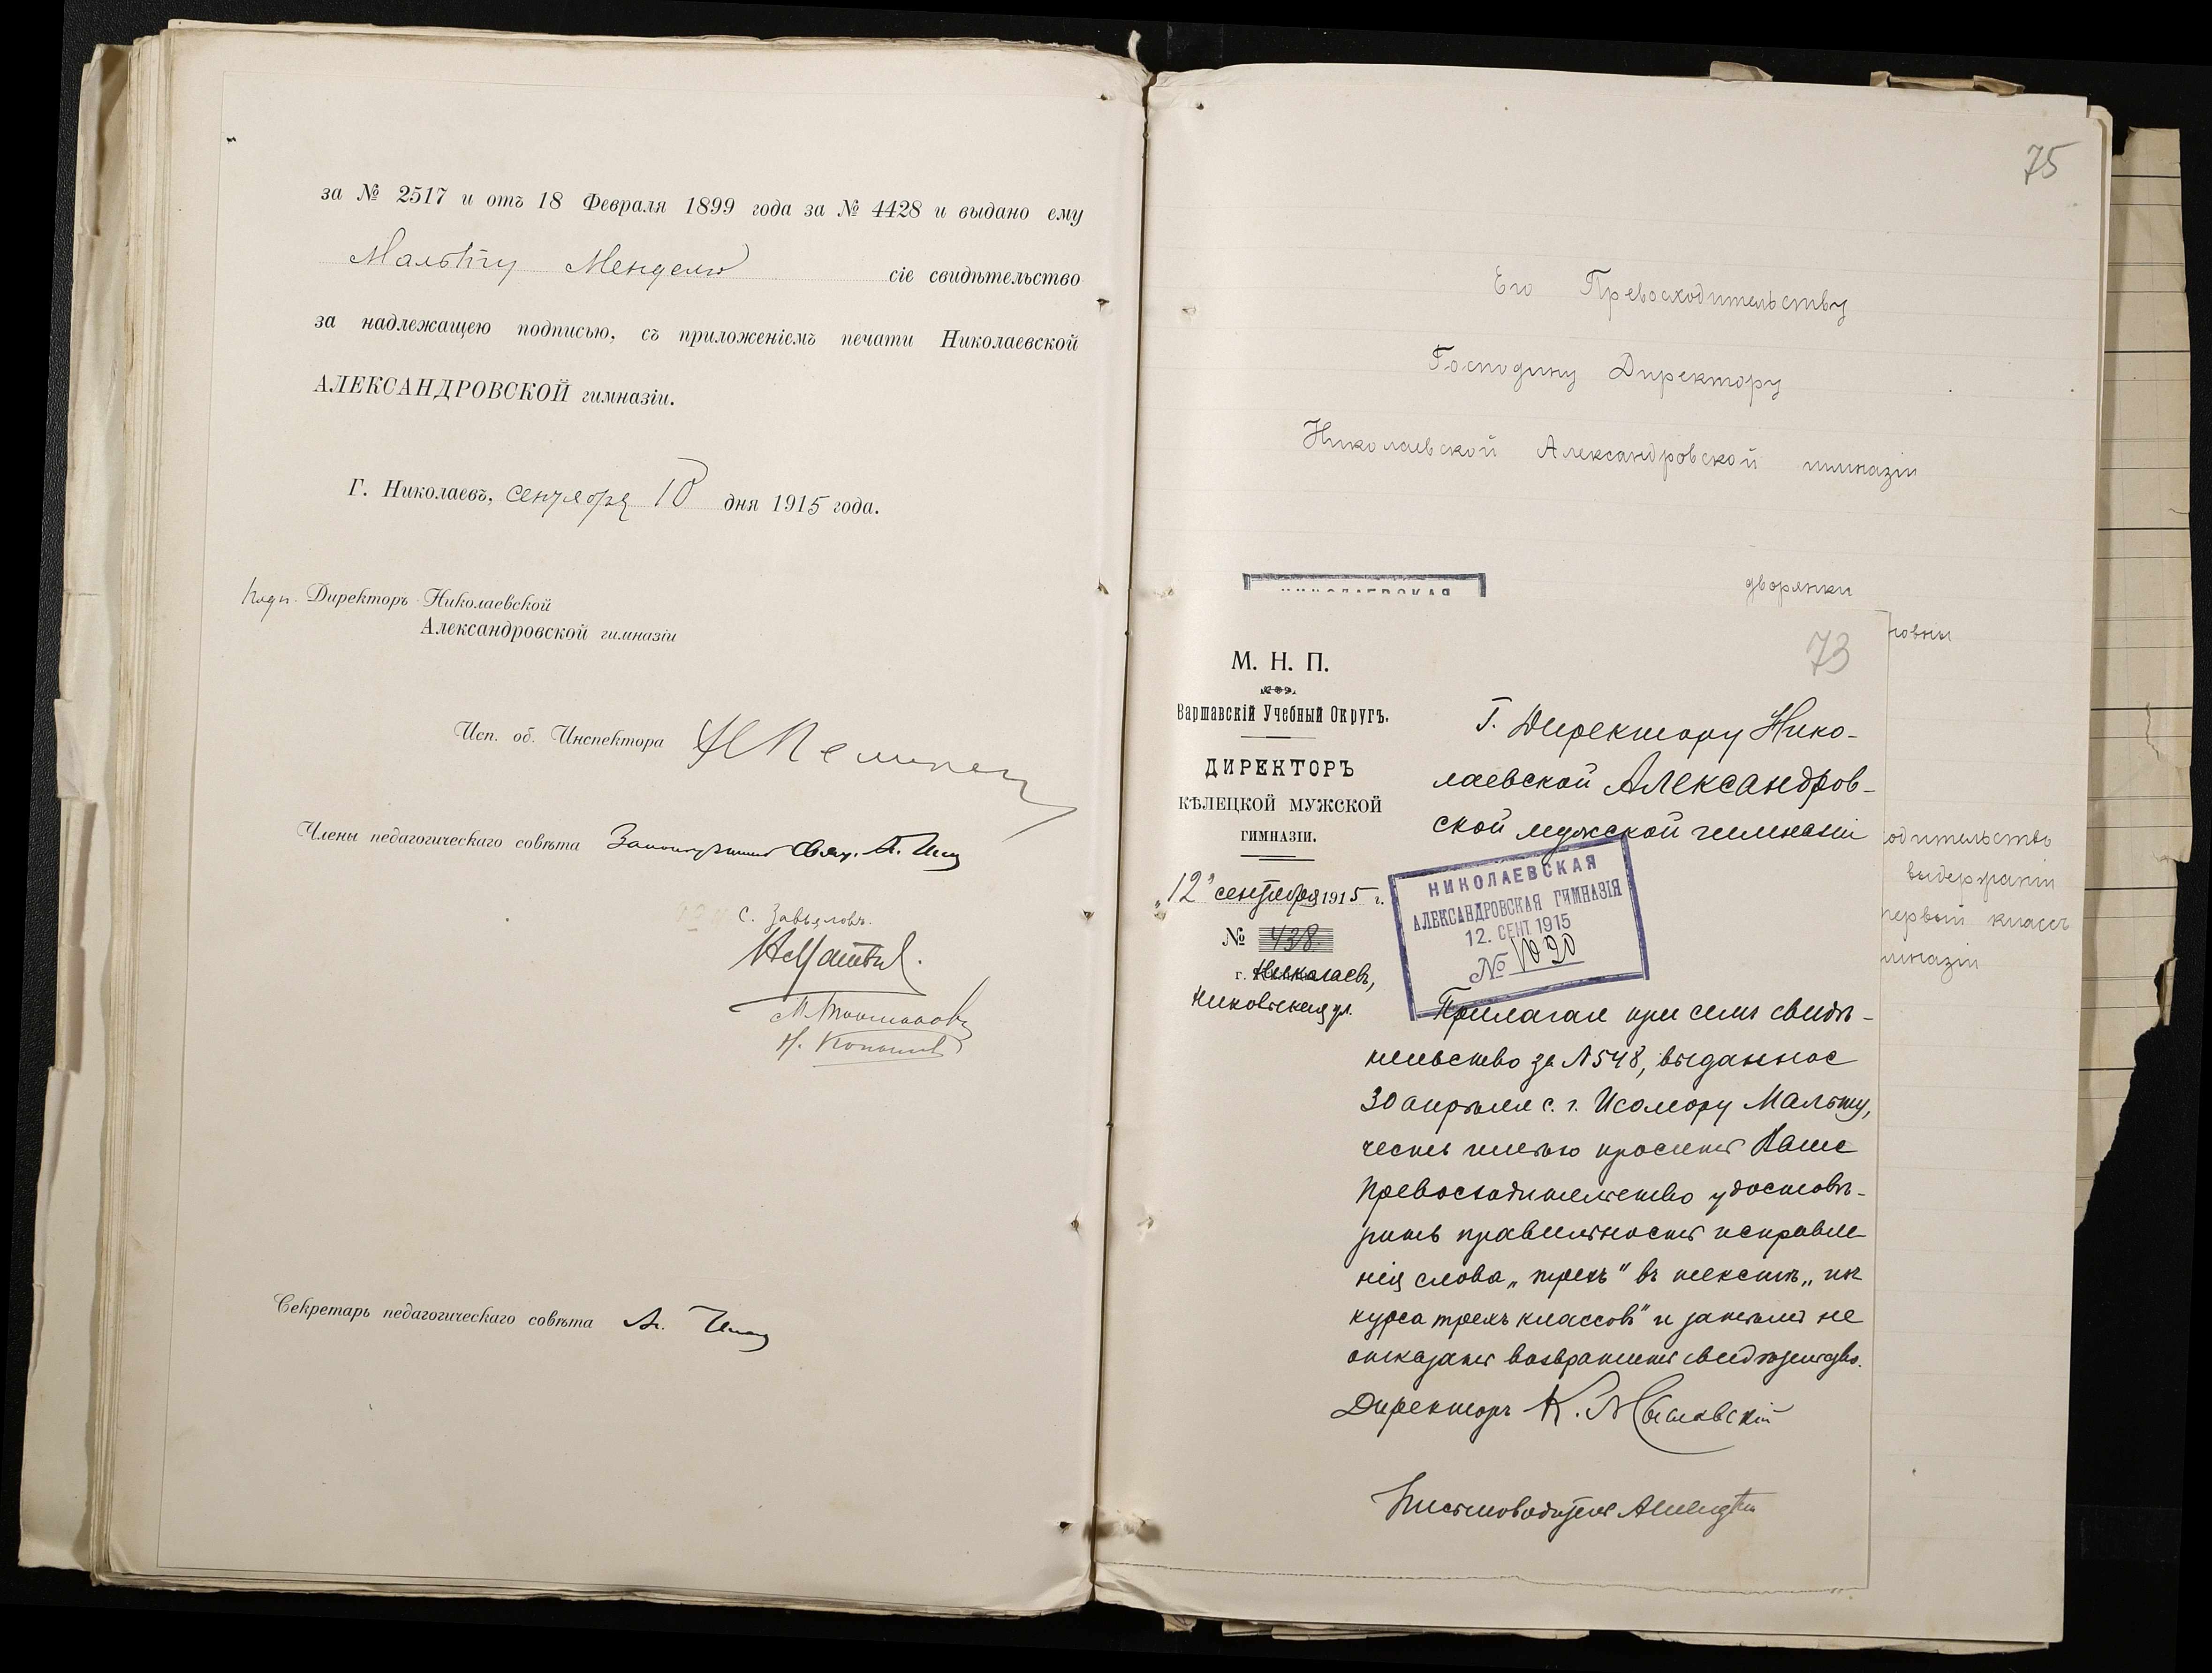 за № 2517 и отъ 18 Февраля 1899 года за № 4428 и выдано ему
Мальту Менделю сіе свидѣтельство
за надлежащею подписью, съ приложеніемъ печати Николаевской
АЛЕКСАНДРОВСКОЙ гимназіи.
Г. Николаевъ, сентября 10 дня 1915 года.
Подп. Директоръ Николаевской
Александровской гимназіи
Исп. об. Инспектора
Члены педагогическаго совѣта Законоучитель Свящ. А.
С. Завьяловъ.
Секретарь педагогическаго совѣта
75
Его Превосходительству
Господину Директору
Николаевской Александровской гимназіи
НИКОЛАЕВСКАЯ
дворянки
новны
73
М. Н. П.
Варшавскій Учебный Округъ.
ДИРЕКТОРЪ
КѢЛЕЦКОЙ МУЖСКОЙ
ГИМНАЗІИ.
„12" сентября 1915 г.
№ 438
г. Николаевъ,
ул.
Г. Директору Нико-
лаевской Александров-
ской мужской гимназіи
НИКОЛАЕВСКАЯ
АЛЕКСАНДРОВСКАЯ ГИМНАЗІЯ
12. СЕНТ 1915
№ 1020
Прилагая при семъ свидѣ-
тельство за № 548, выданное
30 апрѣля с. г. Исомору Мальту,
честь имѣю просить Ваше
Превосходительство удостовѣ-
рить правильность исправле-
нія слова „трехъ" въ текстѣ „
курса трехъ классовъ" и затѣмъ не
отказать возвратить свидѣтельство.
Директоръ К. Мысловскій
Письмоводитель
одительство
выдержаніи
первый классъ
имназіи